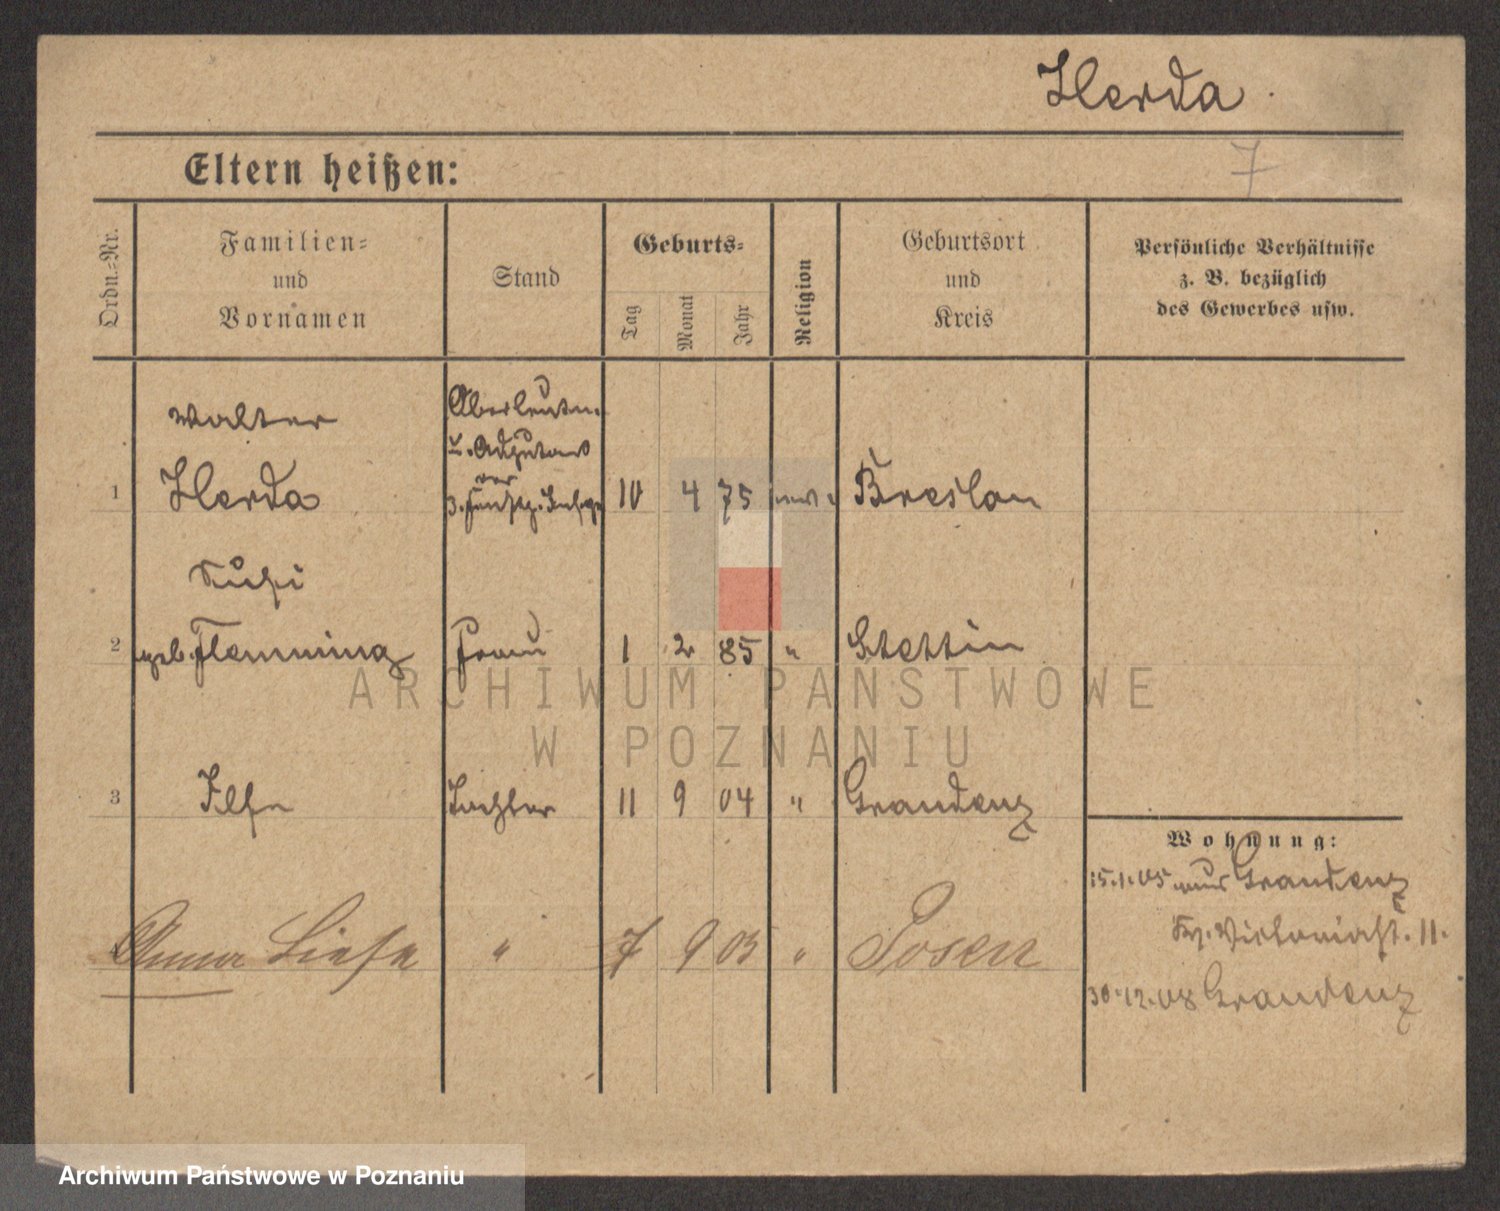 Herda.
7
Eltern heißen:
Ordn.-Nr.
Familien-
und
Vornamen
Stand
Geburts-
Tag
Monat
Jahr
Religion
Geburtsort
und
Kreis
Persönliche Verhältnisse
z. B. bezüglich
des Gewerbes usw.
Walter
Oberleutn.
u. Adjutant
der
1 Herda 10 4 75 Breslau
Susi
2 geb. Flemming Frau 1 2 85 " Stettin
ARCHIWUM PAŃSTWOWE
W POZNANIU
3 Ilse Tochter 11 9 04 " Graudenz
Wohnung:
15.1.05 aus Graudenz
Viktoriast. 11.
Anna Liese " 7 9 05 " Posen
30.12.08 Graudenz
Archiwum Państwowe w Poznaniu